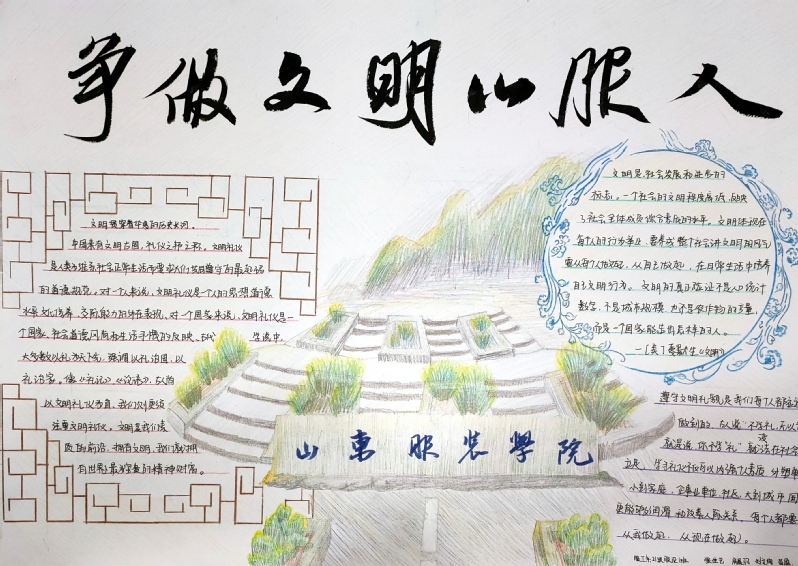 争做文明山服人
文明贯穿着华夏的历史长河。
中国素有文明古国、礼仪之邦之称。文明礼仪
是人类为维系社会正常生活而要求人们共同遵守的最起码
的道德规范。对一个人来说，文明礼仪是一个人的思想道德
水平、文化修养、交际能力的外在表现，对一个国家来说，文明礼仪是一
个国家、社会道德风尚和生活习惯的反映。
大多数以礼为
强调以礼治国，以
以文明礼仪为重，我们则更须
注重文明礼仪。文明是我们
的前沿，拥有文明，我们就拥
有世界最宝贵的精神财富。
文明是社会发展和进步的
标志，一个社会的文明程度高低，反映
了社会全体成员综合素质的水平。文明体现在
每个人的行为举止，要养成整个社会讲文明的风气
要从每个人做起，从自我做起，在日常生活中培养
自己文明行为。文明的真正验证不是人口统计
数字、不是城市规模、也不是农作物的多量，
而是一个国家能造出怎样的人。
—(美)爱默生《文明》
遵守文明礼貌，是我们每个人都应
做到的。古人说“不学礼，无以
就是说，你不学“礼”就没法在社会
学习礼仪不仅可以内强个人素质、外塑单
小到家庭、企事业单位、社区，大到城市、国
更能够润滑和改善人际关系，每个人都要
从我做起，从现在做起。
山东服装学院